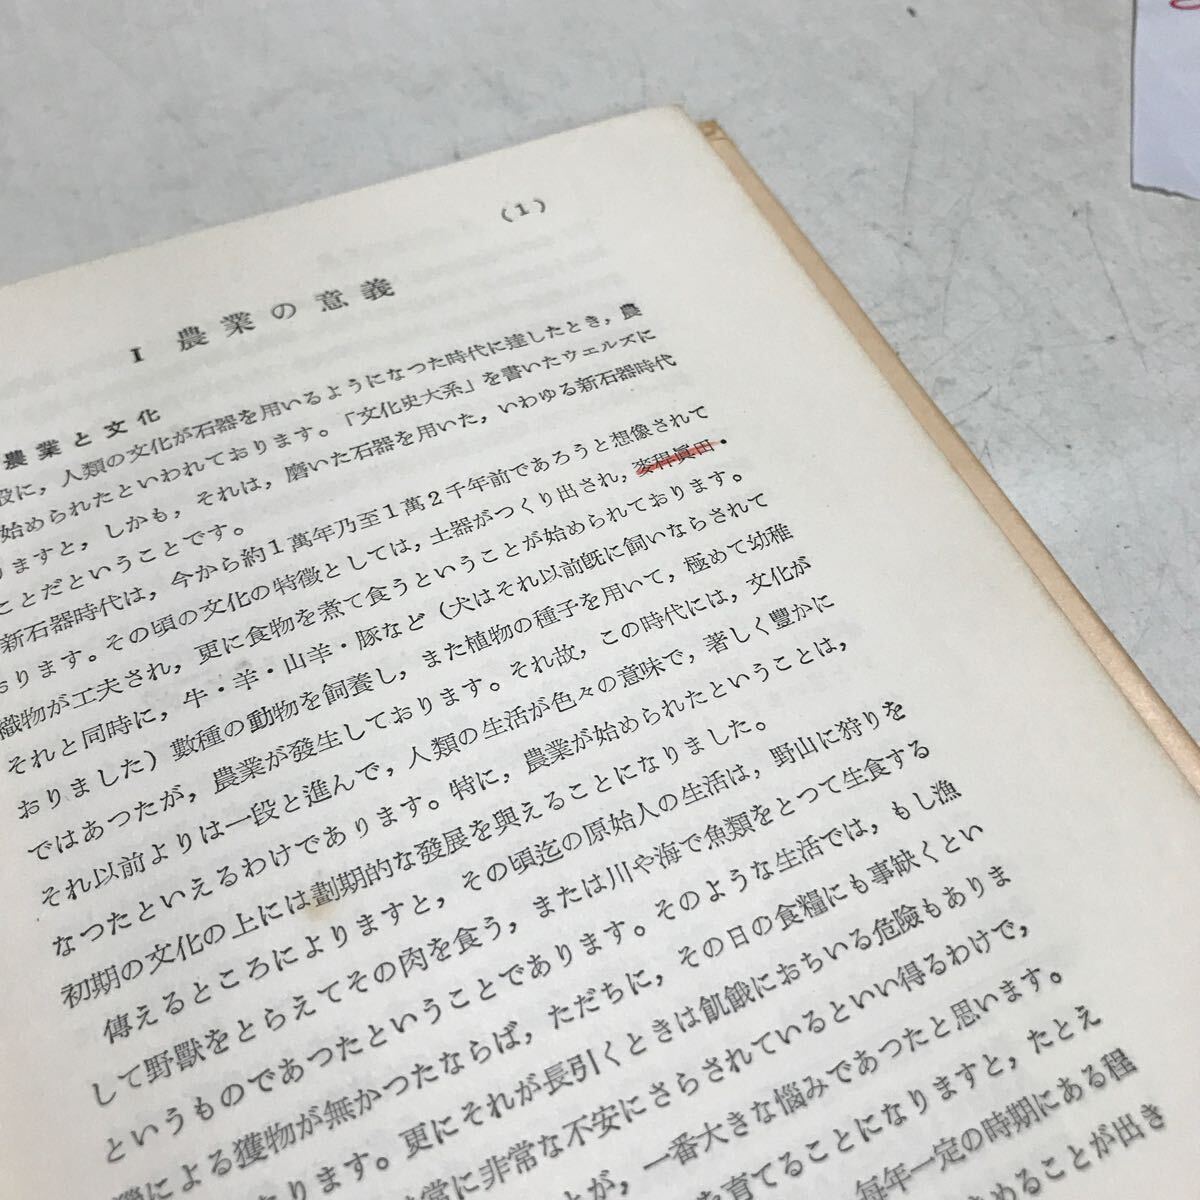 (1)
I 農業の意義
農業と文化
役に，人類の文化が石器を用いるようになつた時代に達したとき，農
始められたといわれております。「文化史大系」を書いたウェルズに
りますと，しかも，それは，磨いた石器を用いた，いわゆる新石器時代
ことだということです。
新石器時代は，今から約1萬年乃至1萬2千年前であろうと想像されて
おります。その頃の文化の特徴としては，土器がつくり出され，麥稈眞田・
織物が工夫され，更に食物を煮て食うということが始められております。
それと同時に，牛・羊・山羊・豚など（犬はそれ以前既に飼いならされて
おりました）數種の動物を飼養し，また植物の種子を用いて，極めて幼稚
ではあつたが，農業が發生しております。それ故，この時代には，文化が
それ以前よりは一段と進んで，人類の生活が色々の意味で，著しく豐かに
なつたといえるわけであります。特に，農業が始められたということは，
初期の文化の上には劃期的な發展を與えることになりました。
傳えるところによりますと，その頃迄の原始人の生活は，野山に狩りを
して野獸をとらえてその肉を食う，または川や海で魚類をとつて生食する
というものであつたということであります。そのような生活では，もし漁
獵による獲物が無かつたならば，ただちに，その日の食糧にも事缺くとい
ります。更にそれが長引くときは飢餓におちいる危險もありま
常に非常な不安にさらされているといい得るわけで，
が，一番大きな惱みであつたと思います。
を育てることになりますと，たとえ
毎年一定の時期にある程
めることが出き